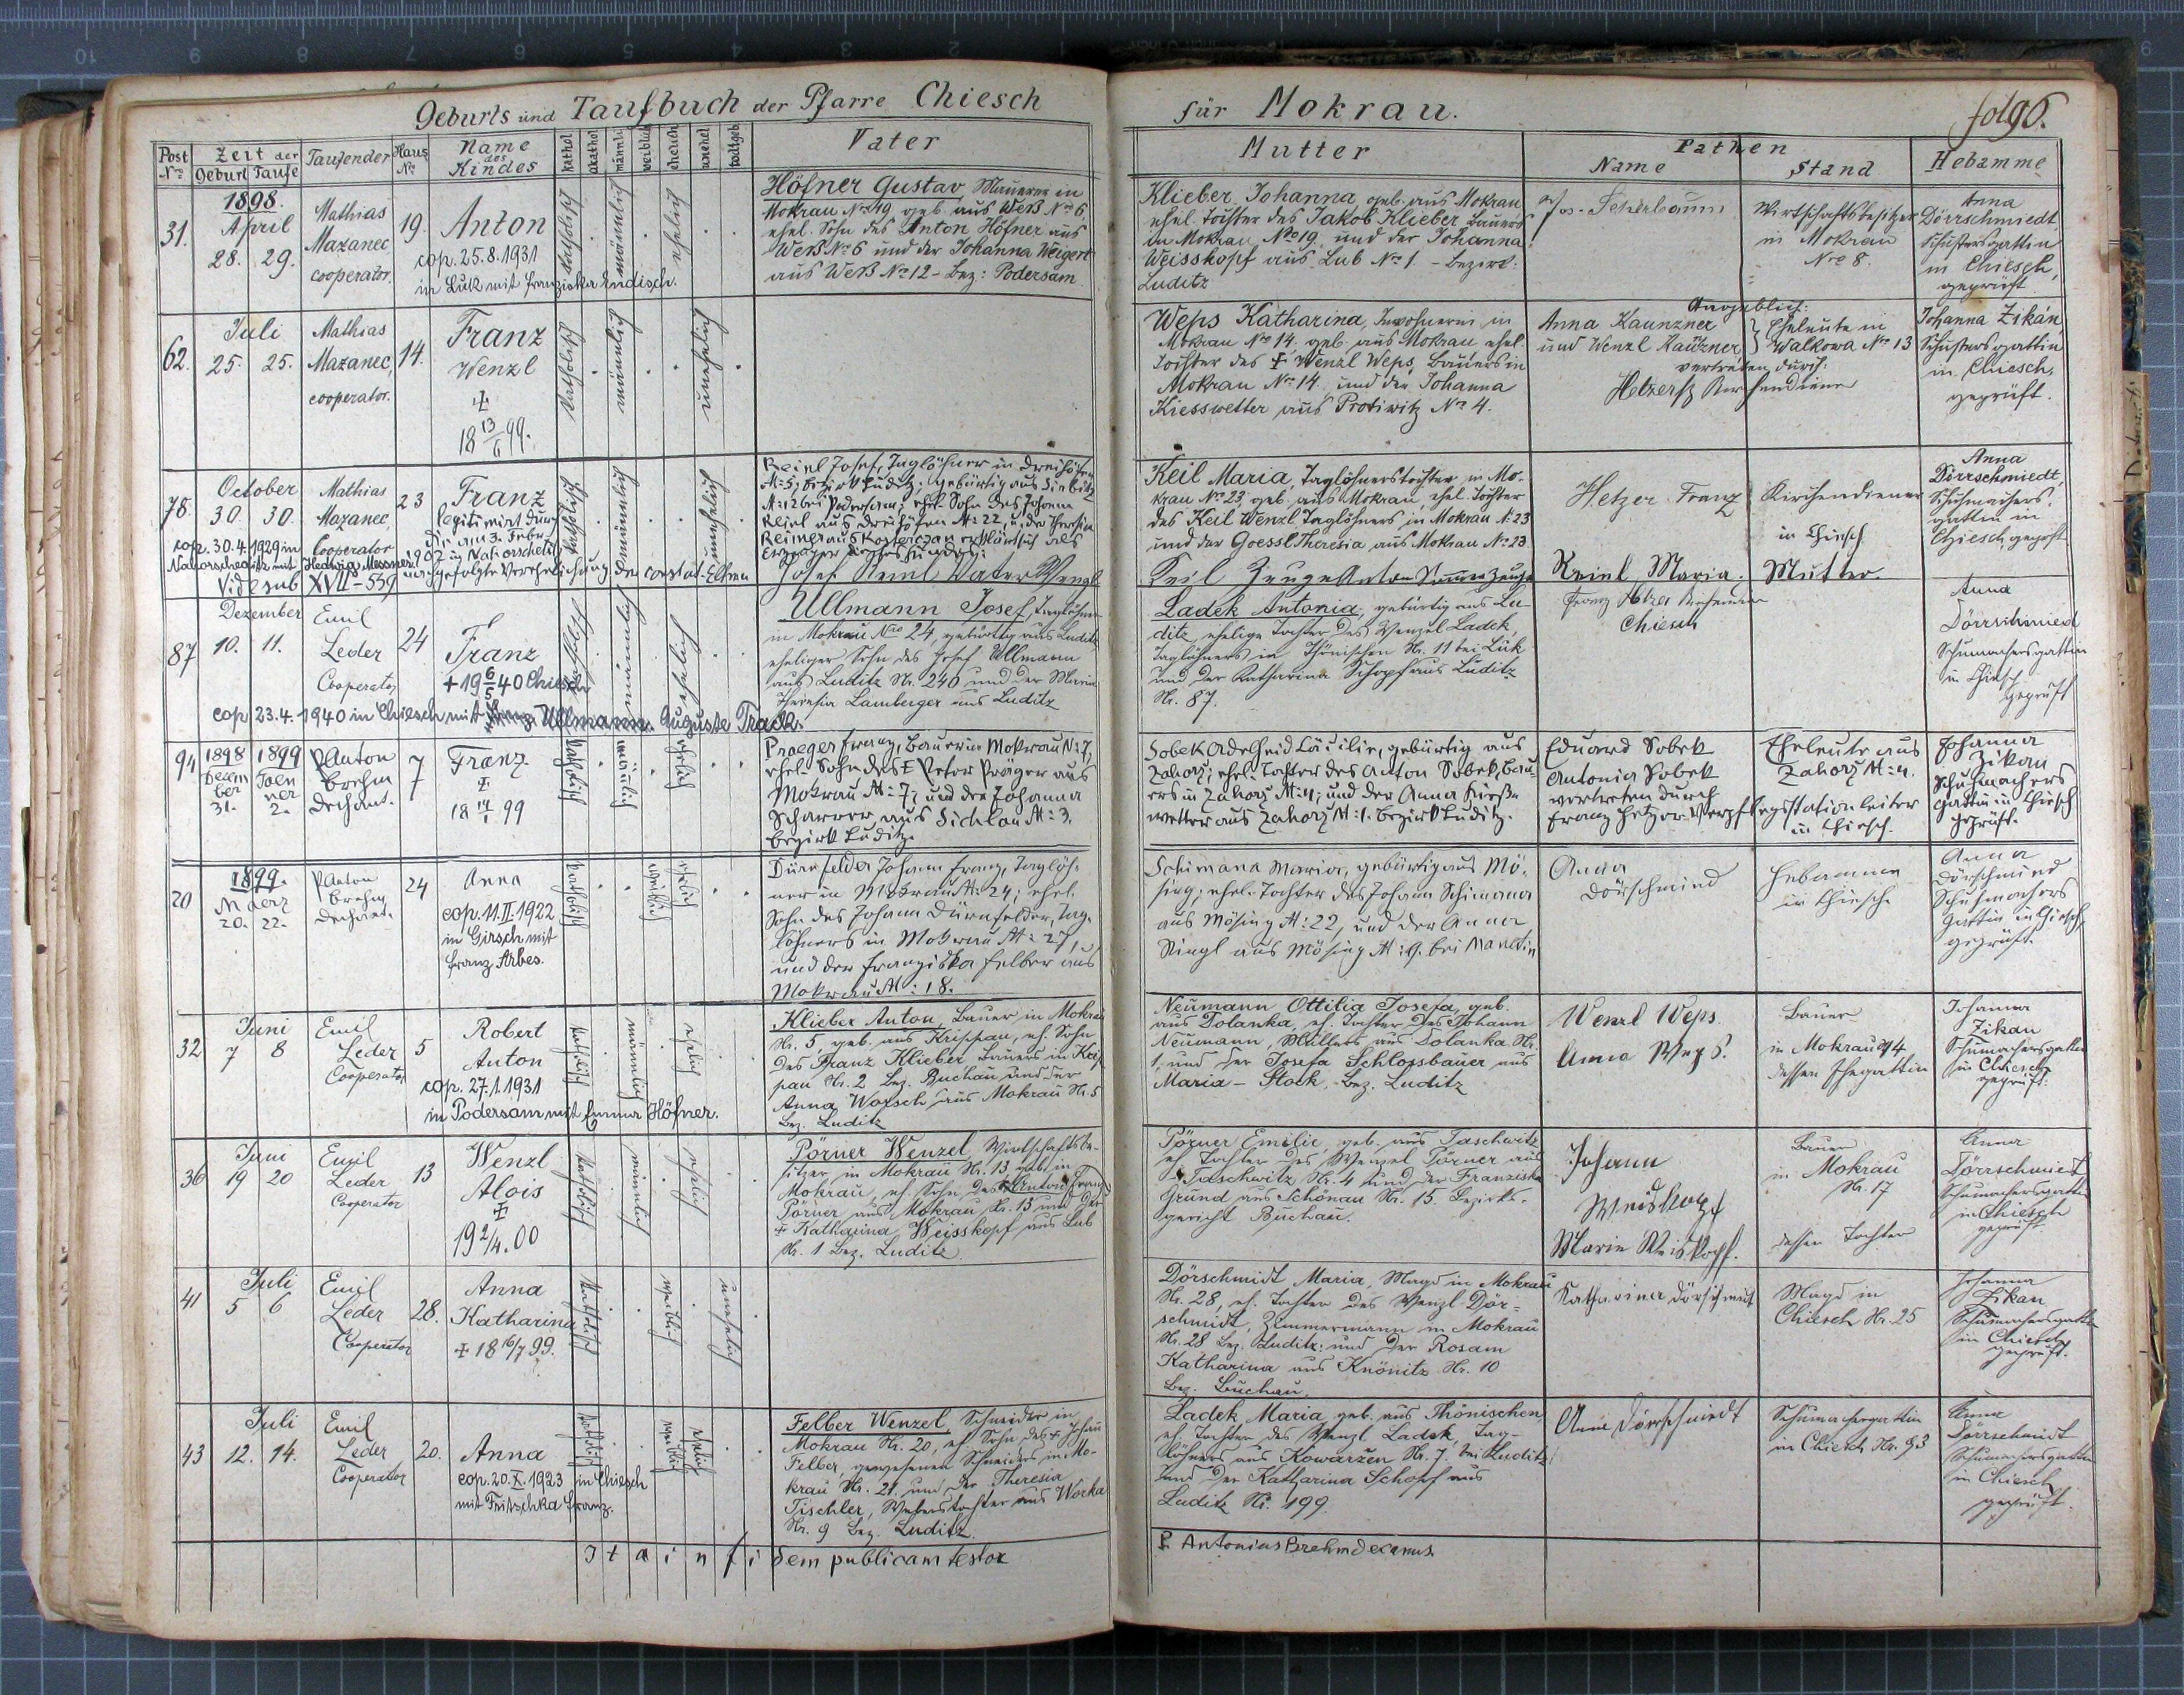 Geburts und Taufbuch der Pfarre Chiesch
für Mokrau.
fol 96.
Post Nro
Zeit der
Geburt Taufe
Taufender
Haus No
Name des Kindes
kathol
akathol
männlich
weiblich
ehelich
unehel
todtgeb
Vater
Mutter
Pathen
Name
Stand
Hebamme
31.
1898.
April
28. 29.
Mathias
Mazanec
cooperator.
19.
Anton
cop. 25.8.1931
in Luk mit Franziska Endisch.
katholisch
männlich
ehelich
Höfner Gustav, Maurer in
Mokrau No 19 geb. aus Weß No 6,
ehel. Sohn des Anton Höfner aus
Weß No 6 und der Johanna Weigert
aus Weß No 12 - Bez: Podersam
Klieber Johanna, geb. aus Mokrau
ehel. Tochter des Jakob Klieber Bauers
in Mokrau No 19. und der Johanna
Weisskopf aus Lub No 1. - Bezirk:
Luditz
Wirtschaftsbesitzer
in Mokrau
Nro 8.
Anna
Dörrschmiedt,
Schustersgattin
in Chiesch,
geprüft
62.
Juli
25. 25.
Mathias
Mazanec,
cooperator.
14.
Franz
Wenzl
‡
18 13/II 99.
katholisch
männlich
unehelich
Weps Katharina, Inwohnerin in
Mokrau No 14. geb. aus Mokrau ehel.
Tochter des ‡ Wenzl Weps, Bauers in
Mokrau No 14. und der Johanna
Kiesswetter aus Protiwitz No 4.
Angeblich:
Anna Kaunzner
und Wenzl Kaunzner
Eheleute in
Walkowa No 13
vertreten durch:
Hetzer Fz Kirchendiener
Johanna Zikán,
Schustersgattin
in Chiesch,
geprüft.
78.
October
30. 30.
Mathias
Mazanec,
Cooperator
23
Franz
legitimirt durch
die am 3. Febr.
1902 in Nahorschetitz
nachgefolgte Verehelichung der Eltern
cop. 30.4.1929 in
Nahorschetitz mit Hedwig Messner
Vide sub XVII - 559
katholisch
männlich
unehelich
Reinl Josef, Taglöhner in Dreihöfen
N: 5; Bezirk Luditz; gebürtig aus
N: 12 bei Podersam; ehel. Sohn des Johann
Reinl aus Dreihöfen N: 22, u. der Theresia
erklärt sich als
Josef Reinl Vater Wenzl
Keil Maria, Taglöhnerstochter in Mo-
krau No 23, geb. aus Mokrau, ehel. Tochter
des Keil Wenzl, Taglöhners in Mokrau N. 23
und der Goessl Theresia aus Mokrau No 23.
Keil Zeuge Anton Zeuge
Hetzer Franz
Kirchendiener
in Chiesch
Reinl Maria. Mutter.
Anna
Dörrschmiedt,
Schuhmachers-
gattin in
Chiesch geprft
87
Dezember
10. 11.
Emil
Leder
Cooperator
24
Franz
+ 19 6/5 40 Chiesch
cop 23.4.1940 in Chiesch mit Auguste
männlich
ehelich
Ullmann Josef, Taglöhner
in Mokrau Nro 24, gebürtig aus Luditz
ehelicher Sohn des Josef Ullmann
aus Luditz Nr. 240 und der Maria
Theresia Lamberger aus Luditz
Ladek Antonia, gebürtig aus Lu-
ditz, eheliche Tochter des Wenzel Ladek
Taglöhners in Thönischen Nr. 11 bei Luk
und der Katharina Schopf aus Luditz
Nr. 87.
Franz Hetzer Kirchendiener
Chiesch
Anna
Dörrschmied
Schumachersgattin
in Chiesch
geprüft
94
1898 1899
Dezember Jaenner
31. 2.
P. Anton
Brehm
Dechant.
7
Franz
‡
18 14/I 99
katholisch
männlich
ehelich
Praeger Franz, Bauer in Mokrau N: 7,
ehel. Sohn des ‡ Peter Präger aus
Mokrau N: 7; und der Johanna
Scharrer aus Sichlau N: 3.
Bezirk Luditz.
Sobek Adelheid Cäcilie, gebürtig aus
Zahorz; ehel. Tochter des Anton Sobek, Bau-
ers in Zahorz N: 4; und der Anna Kieß-
wetter aus Zahorz N: 1. Bezirk Luditz.
Eduard Sobek
Antonia Sobek
vertreten durch
Franz Hetzer Verpflegsstationleiter
in Chiesch.
Eheleute aus
Zahorz N: 4.
Johanna
Zikan
Schuhmachers
gattin in Chiesch
geprüft.
20
1899.
Maerz
20. 22.
P. Anton
Brehm
Dechant.
24
Anna
cop. 11.II.1922
in Girsch mit
Franz Arbes.
katholisch
weiblich
ehelich
Dürnfelder Johann Franz, Taglöh-
ner in Mokrau N: 24; ehel.
Sohn des Johann Dürnfelder, Tag-
löhners in Mokrau N: 27,
und der Franziska Felber aus
Mokrau N: 18.
Schimana Maria, gebürtig aus Mö-
sing; ehel. Tochter des Johann Schimana
aus Mösing N: 22, und der Anna
Ringl aus Mösing N: 9. bei Manetin
Anna
Dörschmied
Hebamme
in Chiesch
Anna
Dörschmied
Schuhmachers
Gattin in Chiesch,
geprüft.
32
Juni
7 8
Emil
Leder
Cooperator
5
Robert
Anton
cop. 27.1.1931
in Podersam mit Emma Höfner.
katholisch
männlich
ehelich
Klieber Anton, Bauer in Mokrau
Nr. 5, geb. aus Krippau, eh. Sohn
des Franz Klieber Bauers in Krip-
pau Nr. 2 Bez. Buchau und der
Anna Worsch aus Mokrau Nr. 5
Bez. Luditz
Neumann Ottilia Josefa, geb.
aus Dolanka, eh. Tochter des Johann
Neumann, Müllers aus Dolanka Nr.
1, und der Josefa Schlossbauer aus
Maria - Stock, Bez. Luditz
Wenzl Weps
Anna Weps.
Bauer
in Mokrau 14
dessen Ehegattin
Johanna
Zikan
Schumachersgattin
in Chiesch
geprüft.
36
Juni
19 20
Emil
Leder
Cooperator
13
Wenzl
Alois
‡
19 2/4. 00
katholisch
männlich
ehelich
Pörner Wenzel, Wirtschaftsbe-
sitzer in Mokrau Nr. 13 geb. in
Mokrau, eh. Sohn des Anton Franz
Pörner aus Mokrau Nr. 13 und der
‡ Katharina Weisskopf aus Lub
Nr. 1 Bez. Luditz.
Pörner Emilie, geb. aus Taschwitz
eh. Tochter des Wenzel Pörner aus
Taschwitz Nr. 4 und der Franziska
Grund aus Schönau Nr. 15. Bezirks-
gericht Buchau.
Johann
Weiskopf
Marie Weiskopf.
Bauer
in Mokrau
Nr. 17
dessen Tochter
Anna
Dörrschmiedt
Schumachersgattin
in Chiesch
geprüft
41
Juli
5 6
Emil
Leder
Cooperator
28.
Anna
Katharina
‡ 18 16/7 99.
katholisch
weiblich
unehelich
Dörschmidt Maria, Magd in Mokrau
Nr. 28, eh. Tochter des Wenzl Dör-
schmidt, Zimmermann in Mokrau
Nr. 28 Bez. Luditz: und der Rosam
Katharina aus Knönitz Nr. 10
Bez. Buchau.
Katharina Dörschmidt
Magd in
Chiesch Nr. 25
Johanna
Zikan
Schumachersgattin
in Chiesch
geprüft.
43
Juli
12. 14.
Emil
Leder
Cooperator
20.
Anna
cop. 20.X.1923 in Chiesch
mit Fritschka Franz.
katholisch
weiblich
ehelich
Felber Wenzel, Schneider in
Mokrau Nr. 20, eh. Sohn des ‡ Johann
Felber, gewesenen Schneiders in Mo-
krau Nr. 21. und der Theresia
Tischler, Weberstochter aus Worka
Nr. 9 Bez. Luditz.
Ladek Maria, geb. aus Thönischen
eh. Tochter des Wenzl Ladek, Tag-
löhners aus Kowarzen Nr. 7. bei Luditz
und der Katharina Schopf aus
Luditz Nr. 199.
Anna Dörrschmiedt
Schumachergattin
in Chiesch Nr. 93
Anna
Dörrschmidt
Schumachersgattin
in Chiesch
geprüft.
Ita in fidem publicam testor
P. Antonius Brehm decanus.